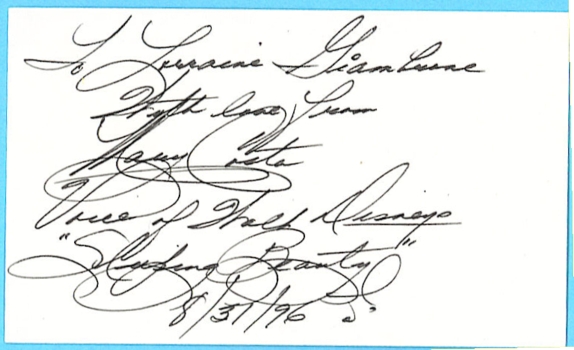 To Lorraine Giambrone
With love from
Mary Costa
Voice of Walt Disneys
"Sleeping Beauty"
8/31/96